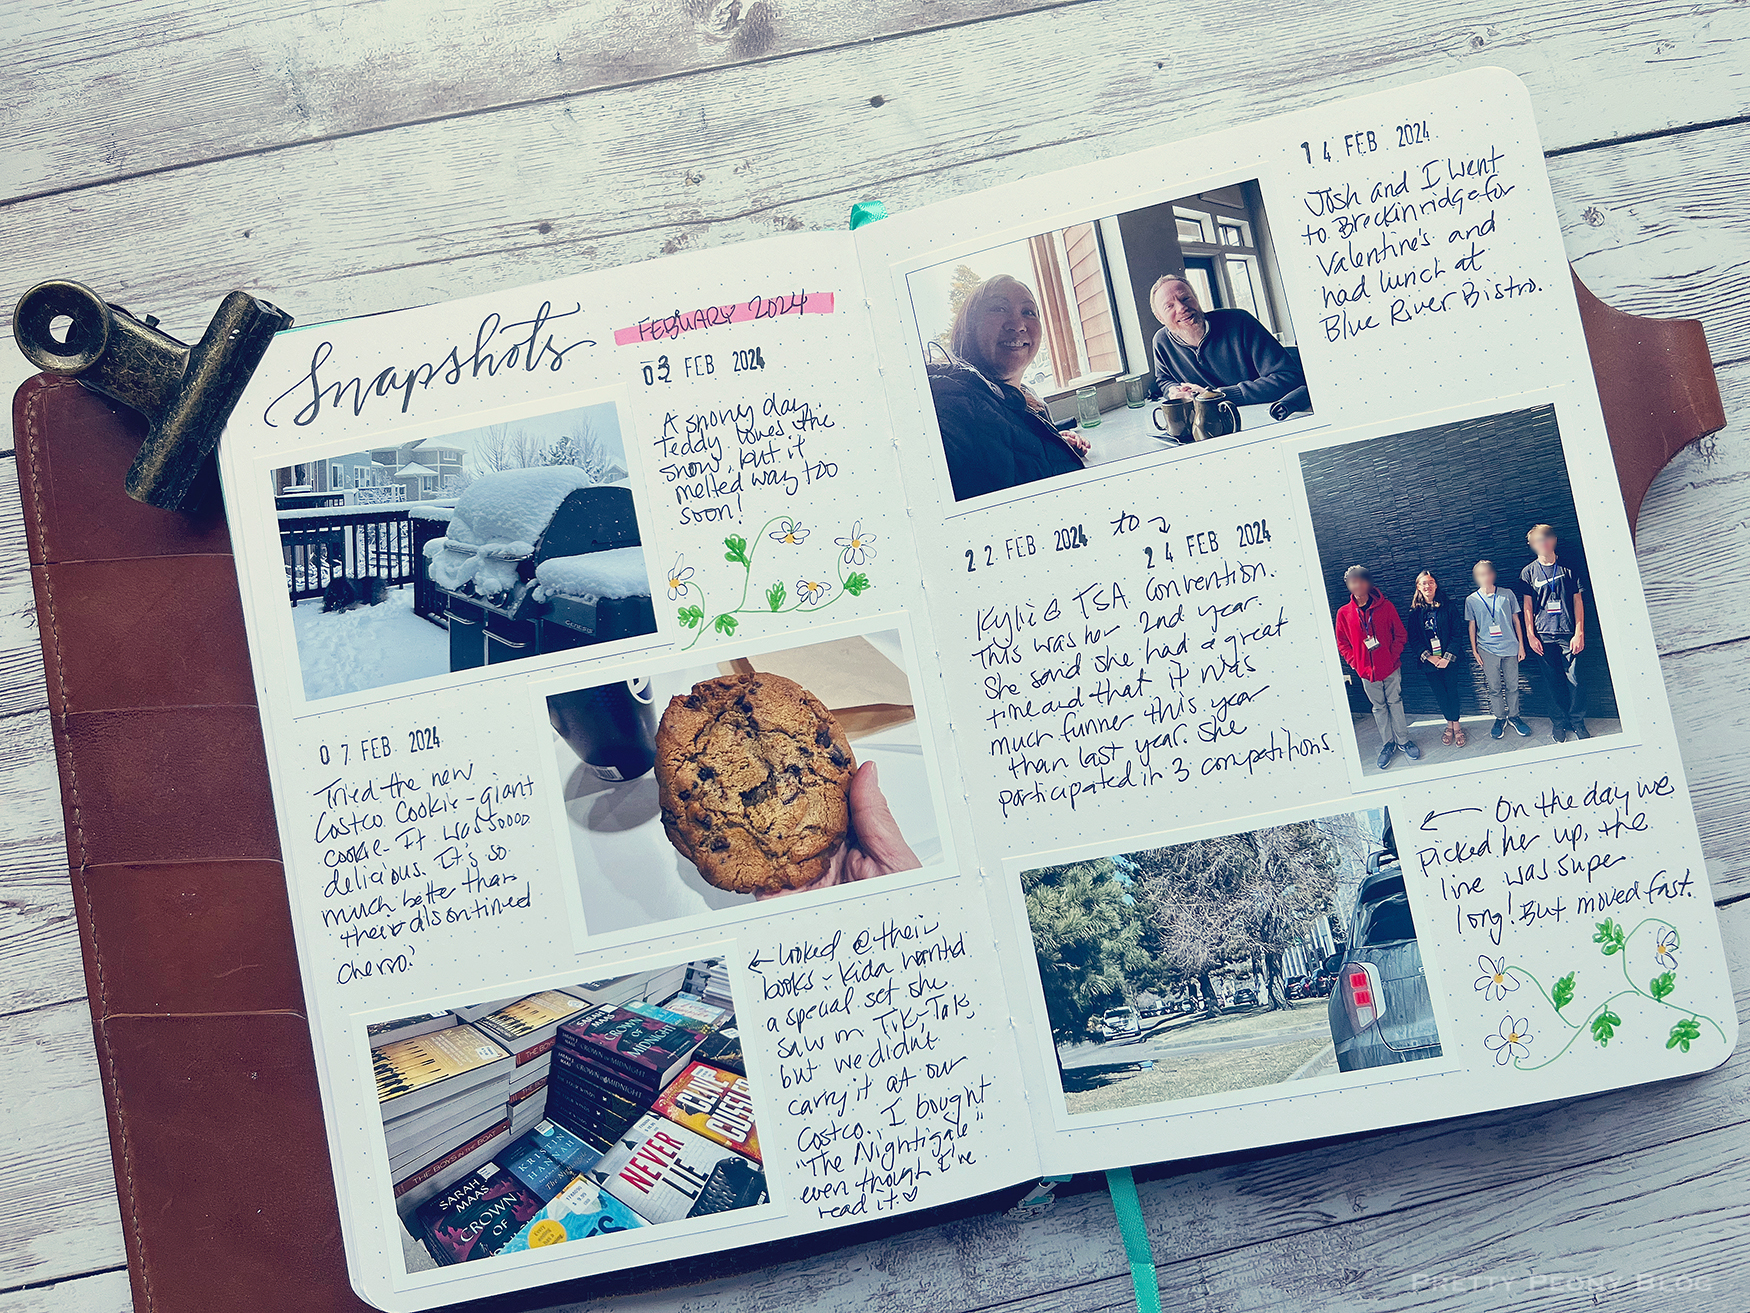 Snapshots
FEBUARY 2024
03 FEB 2024
A snowy day.
Teddy loves the
snow, but it
melted way too
soon!
GENESIS
07 FEB 2024
Tried the new
Costco Cookie - giant
cookie. It was soooo
delicious. It's so
much better than
their discontined
churro!
← Looked @ their
books - Kida wanted
a special set she
saw on Tik-Tok,
but we didn't
carry it at our
Costco. I bought
"The Nightigale"
even though I've
read it. ♡
CROWN OF
MIDNIGHT
CROWN OF MIDNIGHT
THE BOYS IN THE BOAT
KRISTIN
HANNAH
The Nightingale
NEVER
LIE
CLIVE
CUSSLER
SARAH
MAAS
CROWN
OF
14 FEB 2024
Josh and I went
to Breckinridge for
Valentine's and
had lunch at
Blue River Bistro.
22 FEB 2024 to
24 FEB 2024
Kylie @ TSA Convention.
This was her 2nd year.
She said she had a great
time and that it was
much funner this year
than last year. She
participated in 3 competitions.
← On the day we
picked her up, the
line was super
long! But moved fast.
PRETTY PEONY BLOG